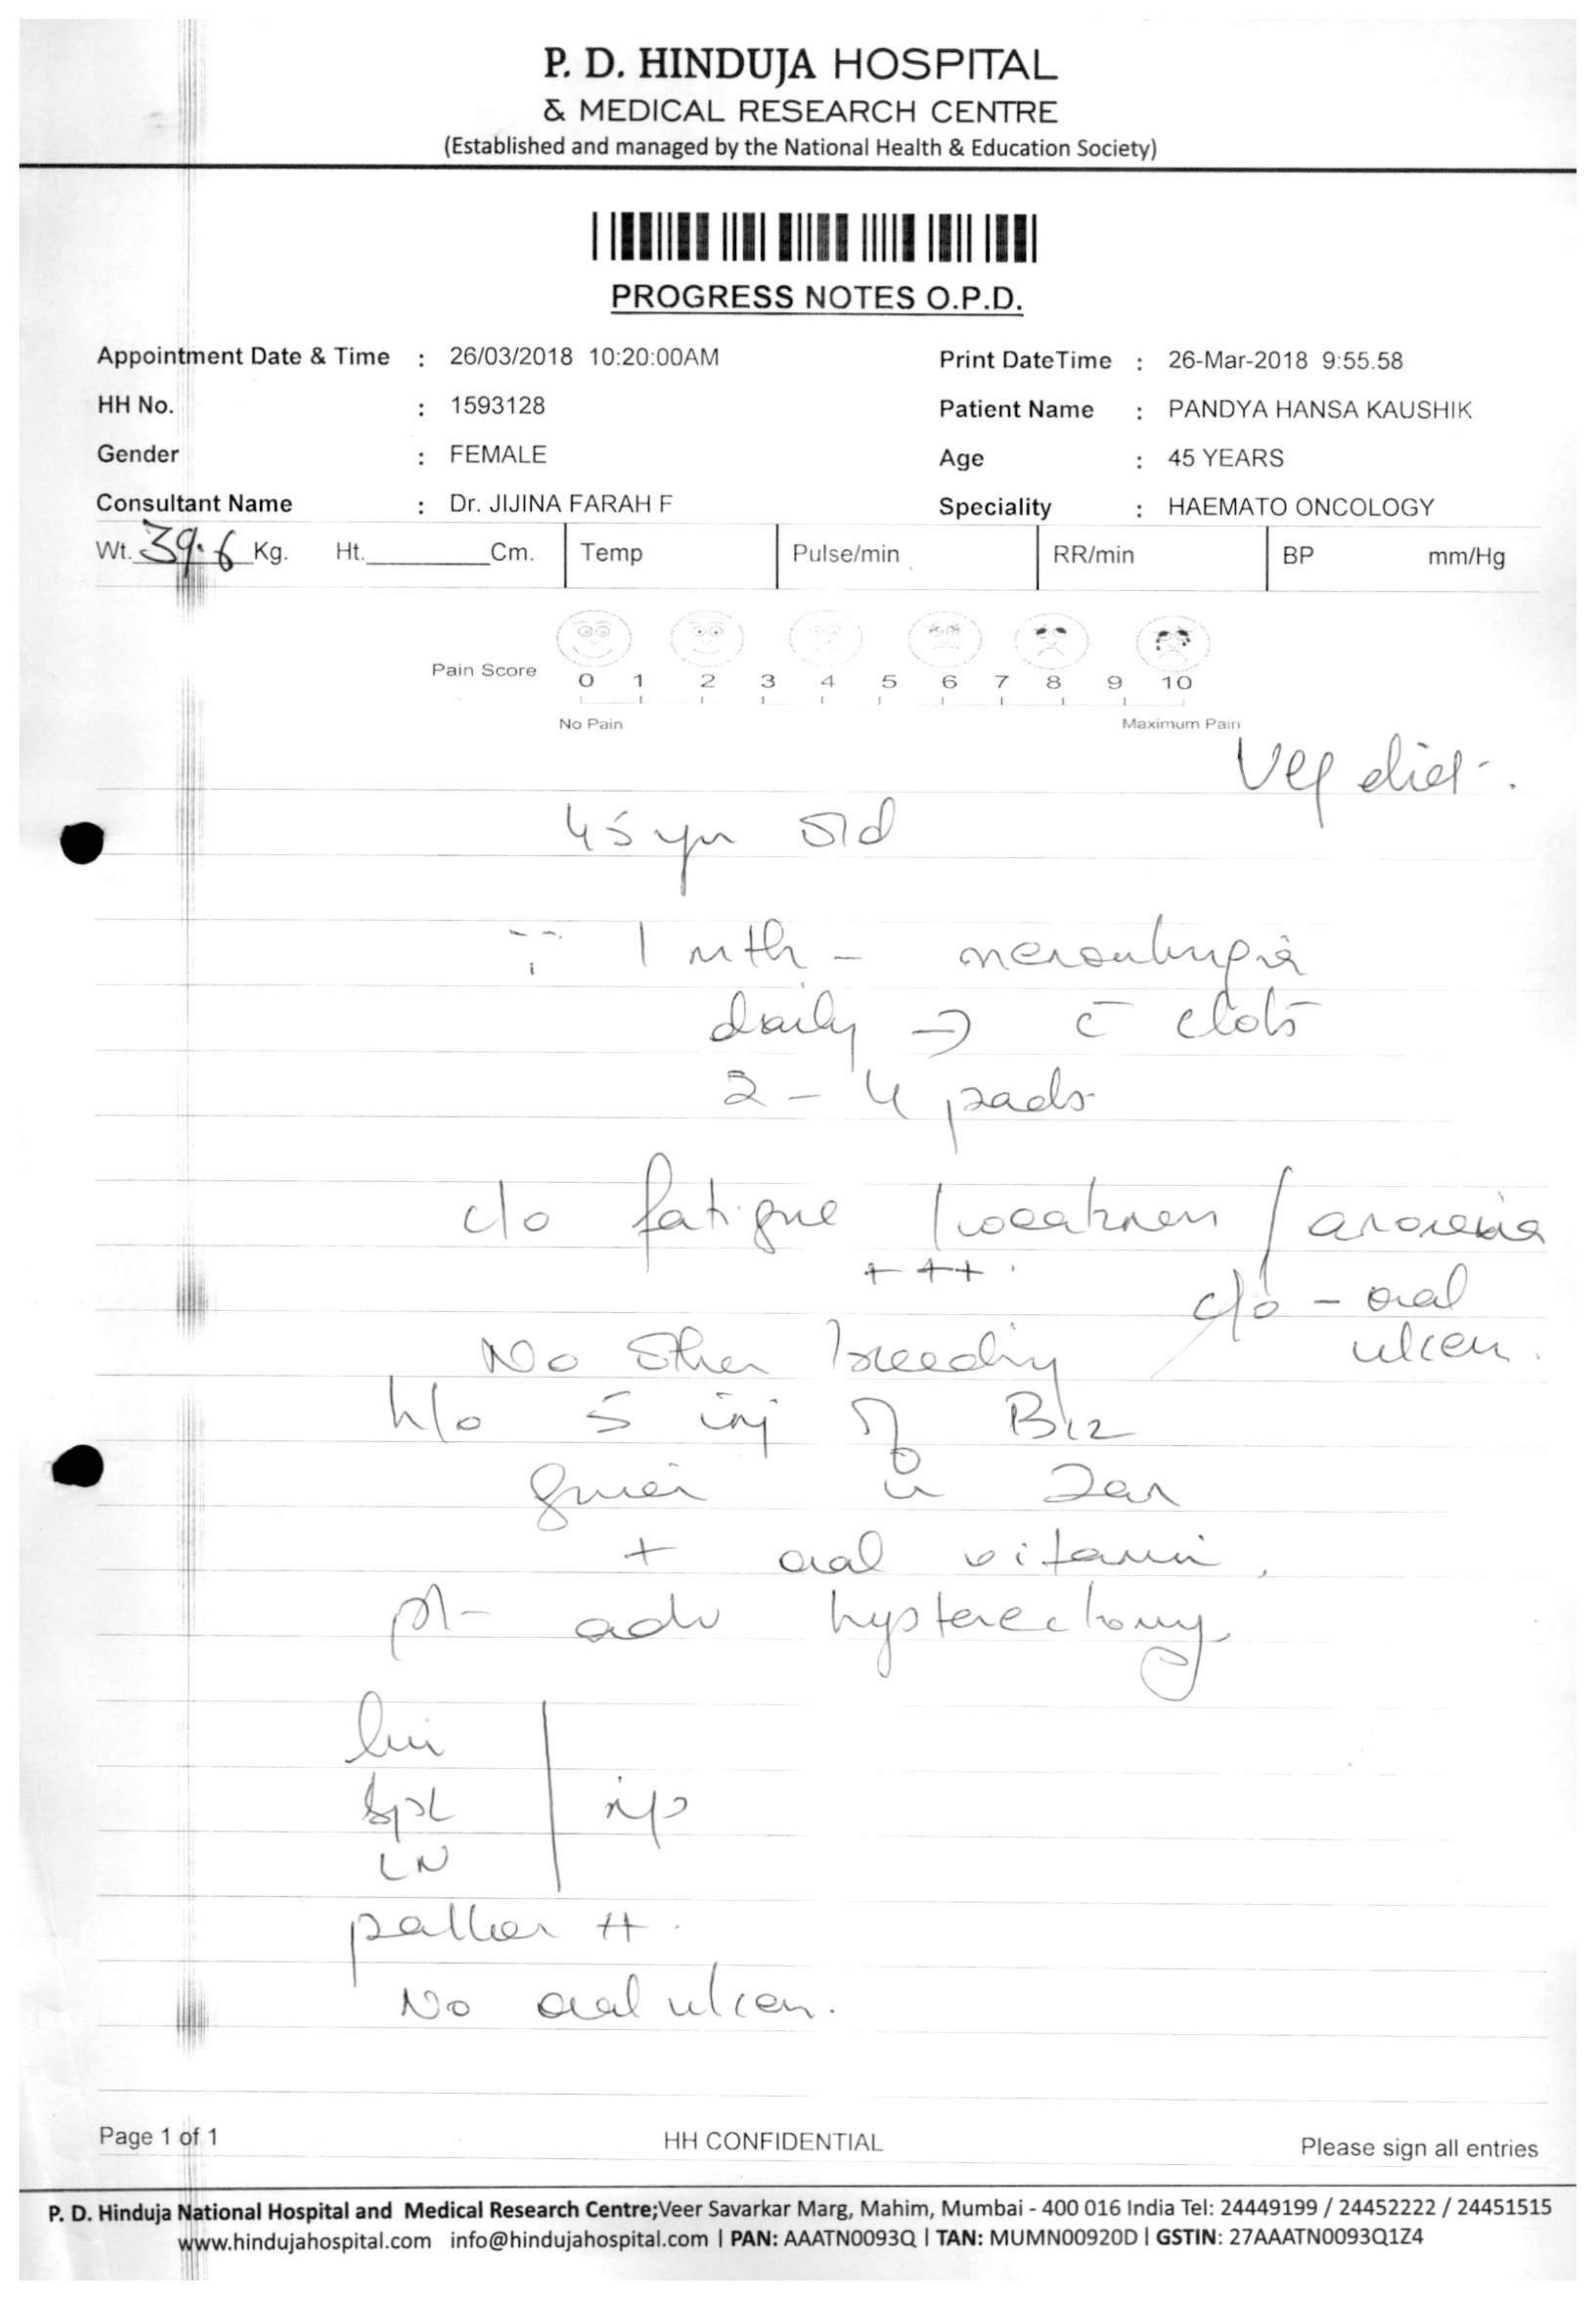 P. D. HINDUJA HOSPITAL
& MEDICAL RESEARCH CENTRE
(Established and managed by the National Health & Education Society)
PROGRESS NOTES O.P.D.
Appointment Date & Time : 26/03/2018 10:20:00AM Print DateTime : 26-Mar-2018 9:55.58
HH No. : 1593128 Patient Name : PANDYA HANSA KAUSHIK
Gender : FEMALE Age : 45 YEARS
Consultant Name : Dr. JIJINA FARAH F Speciality : HAEMATO ONCOLOGY
Wt. 39.6 Kg. Ht. Cm. Temp Pulse/min RR/min BP mm/Hg
Pain Score 0 1 2 3 4 5 6 7 8 9 10
No Pain Maximum Pain
Veg diet.
45 yr old
1 mth -
daily → c̄ clots
2 - 4 pads
c/o fatigue / weakness / anorexia
+ ++
c/o - oral
ulcers.
No other bleeding
h/o 5 inj of B12
given in Jan
+ oral vitamin.
pt adv hysterectomy
liv
spl n/p
LN
pallor ++.
No oral ulcers.
Page 1 of 1 HH CONFIDENTIAL Please sign all entries
P. D. Hinduja National Hospital and Medical Research Centre;Veer Savarkar Marg, Mahim, Mumbai - 400 016 India Tel: 24449199 / 24452222 / 24451515
www.hindujahospital.com info@hindujahospital.com | PAN: AAATN0093Q | TAN: MUMN00920D | GSTIN: 27AAATN0093Q1Z4